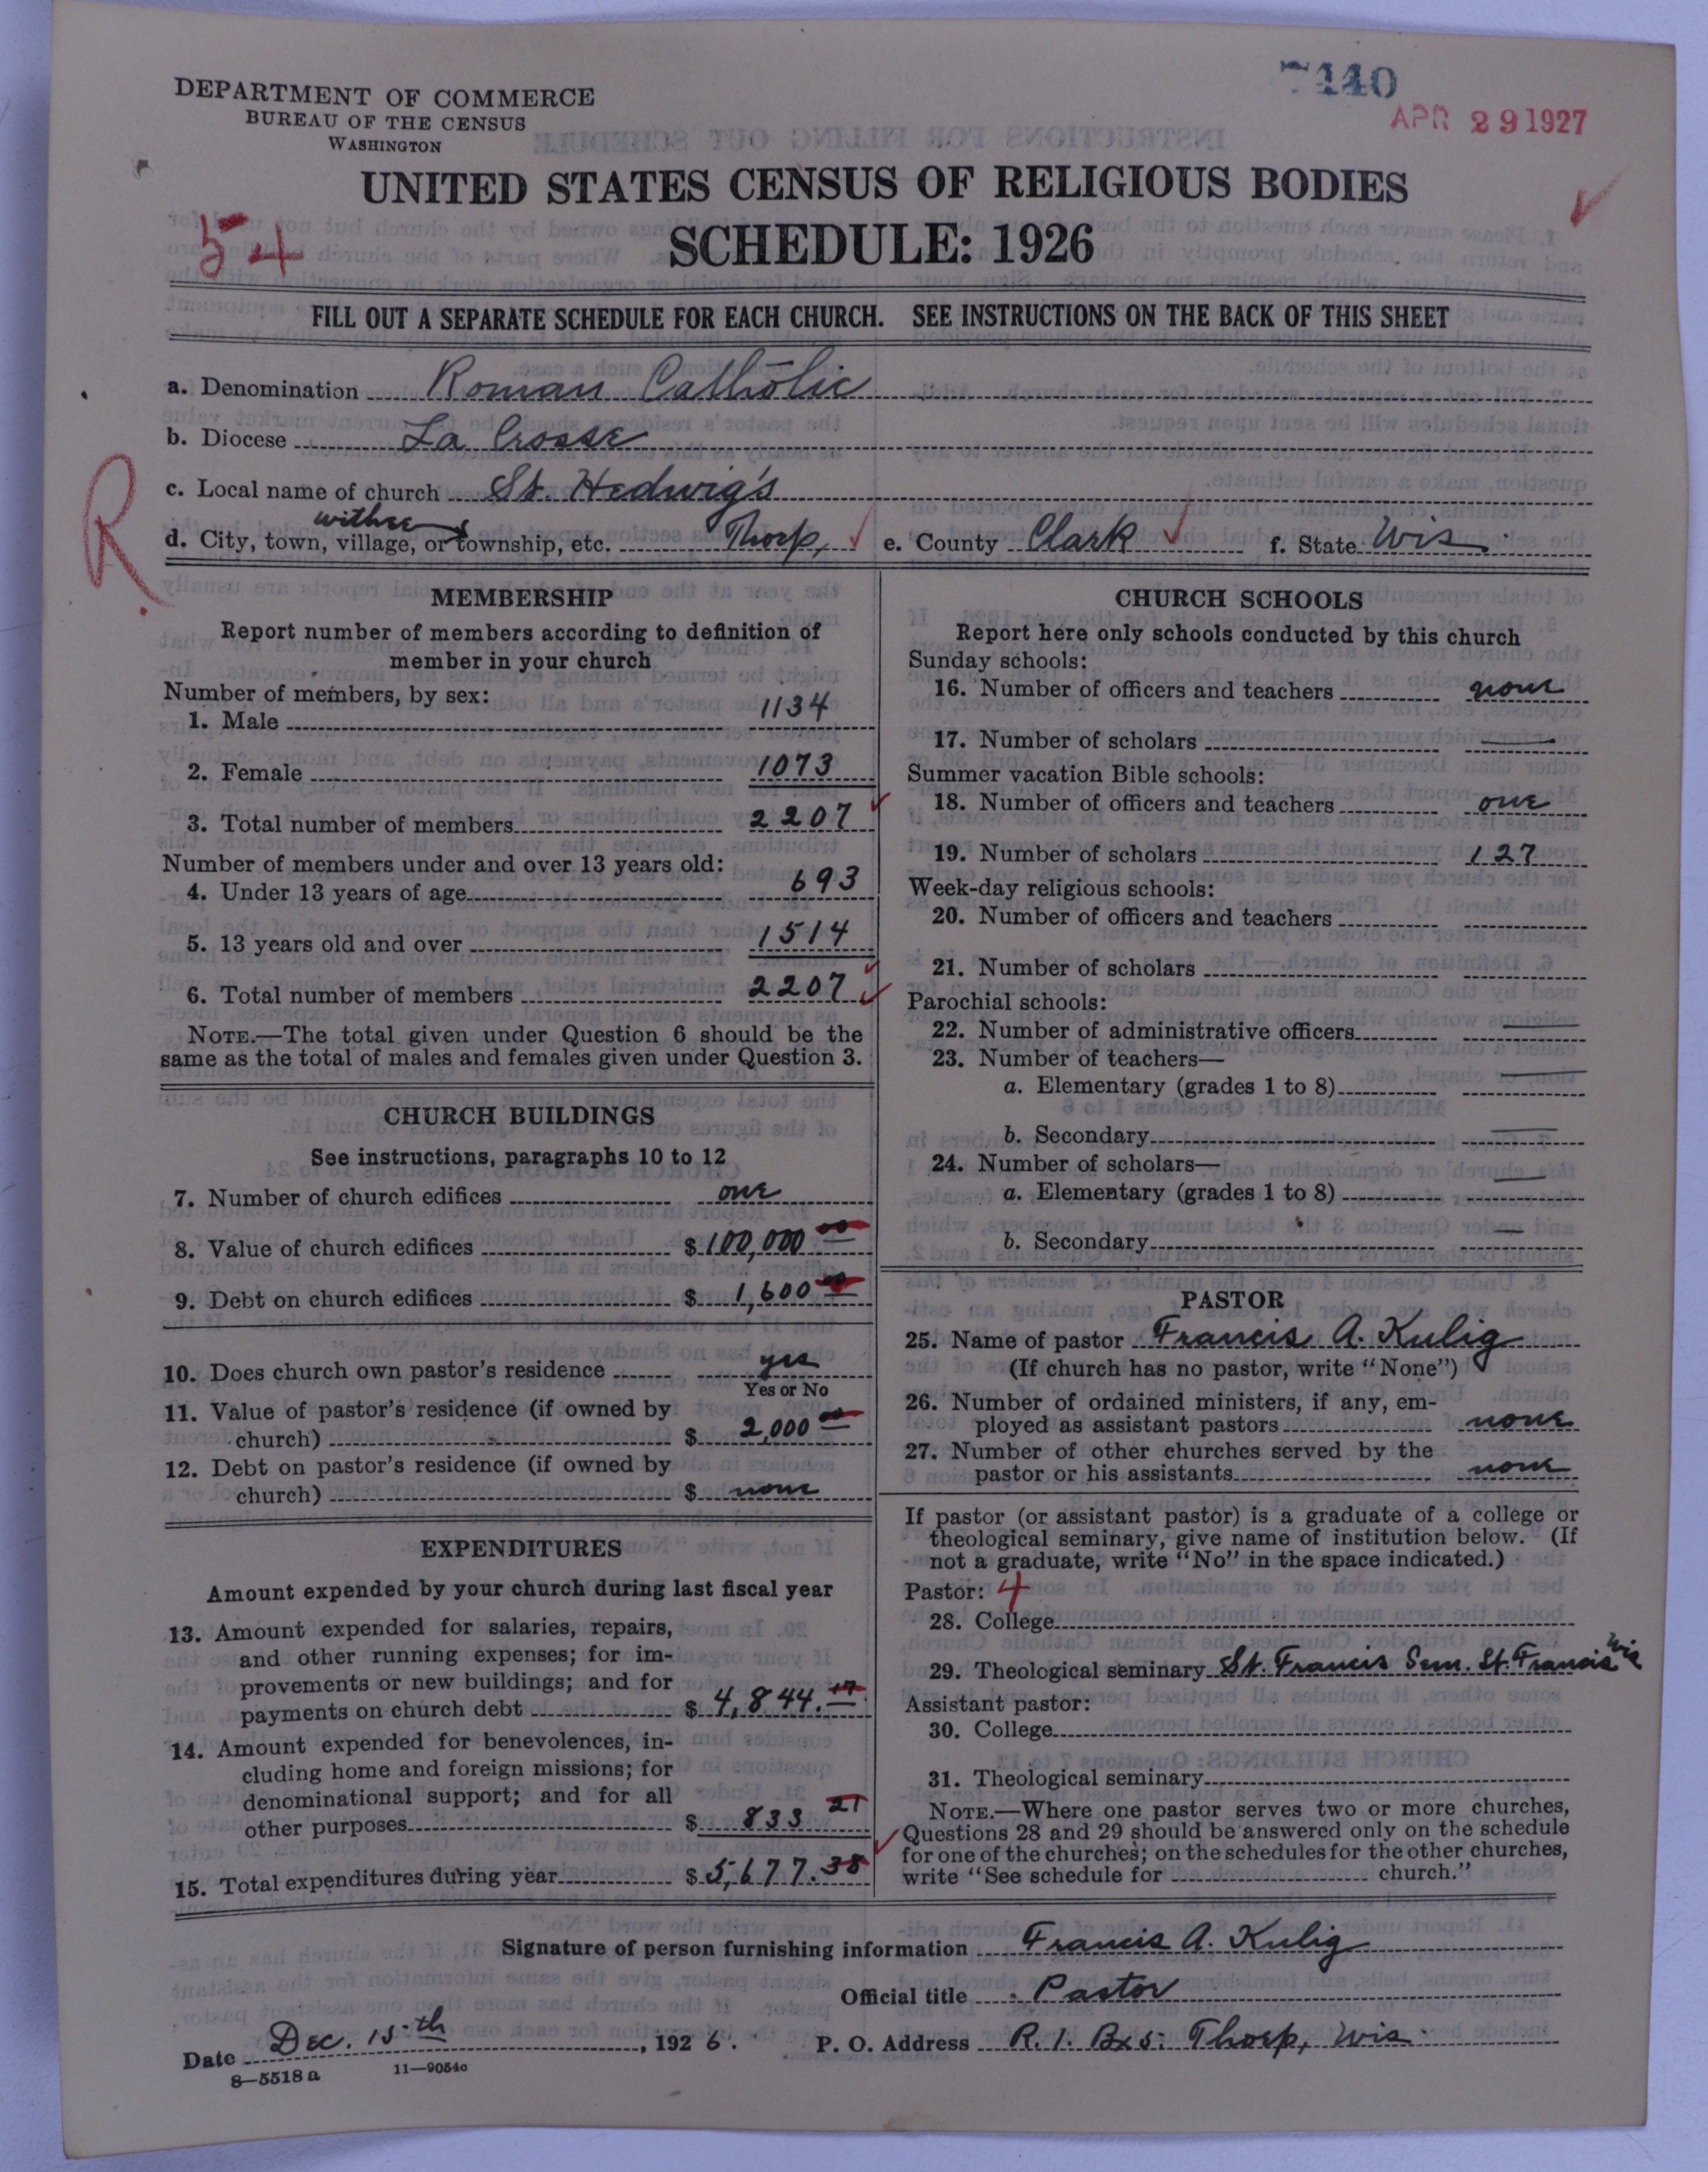 DEPARTMENT OF COMMERCE
BUREAU OF THE CENSUS
WASHINGTON
7440
APR 29 1927
UNITED STATES CENSUS OF RELIGIOUS BODIES
SCHEDULE: 1926
54
FILL OUT A SEPARATE SCHEDULE FOR EACH CHURCH. SEE INSTRUCTIONS ON THE BACK OF THIS SHEET
a. Denomination Roman Catholic
b. Diocese La Crosse
c. Local name of church St. Hedwig's
R
withee
d. City, town, village, or township, etc. Thorp, e. County Clark f. State Wis.
MEMBERSHIP
Report number of members according to definition of
member in your church
Number of members, by sex:
1. Male 1134
2. Female 1073
3. Total number of members 2207
Number of members under and over 13 years old:
4. Under 13 years of age 693
5. 13 years old and over 1514
6. Total number of members 2207
NOTE.—The total given under Question 6 should be the
same as the total of males and females given under Question 3.
CHURCH BUILDINGS
See instructions, paragraphs 10 to 12
7. Number of church edifices one
8. Value of church edifices $ 100,000 00
9. Debt on church edifices $ 1,600 00
10. Does church own pastor's residence yes
Yes or No
11. Value of pastor's residence (if owned by
church) $ 2,000 00
12. Debt on pastor's residence (if owned by
church) $ none
EXPENDITURES
Amount expended by your church during last fiscal year
13. Amount expended for salaries, repairs,
and other running expenses; for im-
provements or new buildings; and for
payments on church debt $ 4,844.17
14. Amount expended for benevolences, in-
cluding home and foreign missions; for
denominational support; and for all
other purposes $ 833 21
15. Total expenditures during year $ 5,677.38
CHURCH SCHOOLS
Report here only schools conducted by this church
Sunday schools:
16. Number of officers and teachers none
17. Number of scholars —
Summer vacation Bible schools:
18. Number of officers and teachers one
19. Number of scholars 127
Week-day religious schools:
20. Number of officers and teachers
21. Number of scholars
Parochial schools:
22. Number of administrative officers —
23. Number of teachers—
a. Elementary (grades 1 to 8) —
b. Secondary —
24. Number of scholars—
a. Elementary (grades 1 to 8) —
b. Secondary —
PASTOR
25. Name of pastor Francis A. Kulig
(If church has no pastor, write "None")
26. Number of ordained ministers, if any, em-
ployed as assistant pastors none
27. Number of other churches served by the
pastor or his assistants none
If pastor (or assistant pastor) is a graduate of a college or
theological seminary, give name of institution below. (If
not a graduate, write "No" in the space indicated.)
Pastor: 4
28. College
29. Theological seminary St. Francis Sem. St. Francis Wis
Assistant pastor:
30. College
31. Theological seminary
NOTE.—Where one pastor serves two or more churches,
Questions 28 and 29 should be answered only on the schedule
for one of the churches; on the schedules for the other churches,
write "See schedule for church."
Signature of person furnishing information Francis A. Kulig
Official title Pastor
Date Dec. 15th, 1926. P. O. Address R. 1. Bx 5. Thorp, Wis.
8—5518 a 11—9054c